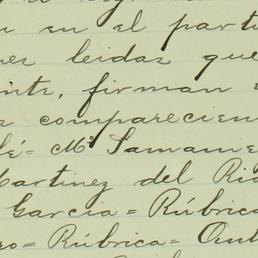 en el parti
leidas que
nte, firman
comparecien
lé= Mª Samame
Martinez del Rio
Garcia = Rúbrica
ro= Rúbrica= Ant